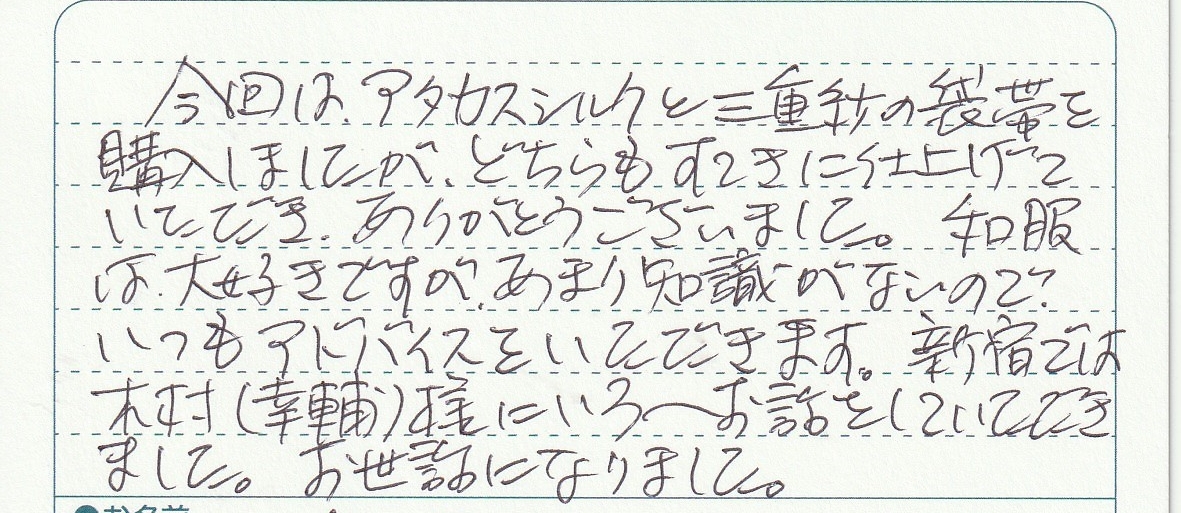 今回は、アタカスシルクと三重紗の袋帯を
購入しましたが、どちらもすてきに仕上げて
いただき、ありがとうございました。 和服
は、大好きですが、あまり知識がないので、
いつもアドバイスをいただきます。新宿では
木村(幸輔)様にいろ〱お話をしていただき
ました。 お世話になりました。
●お名前